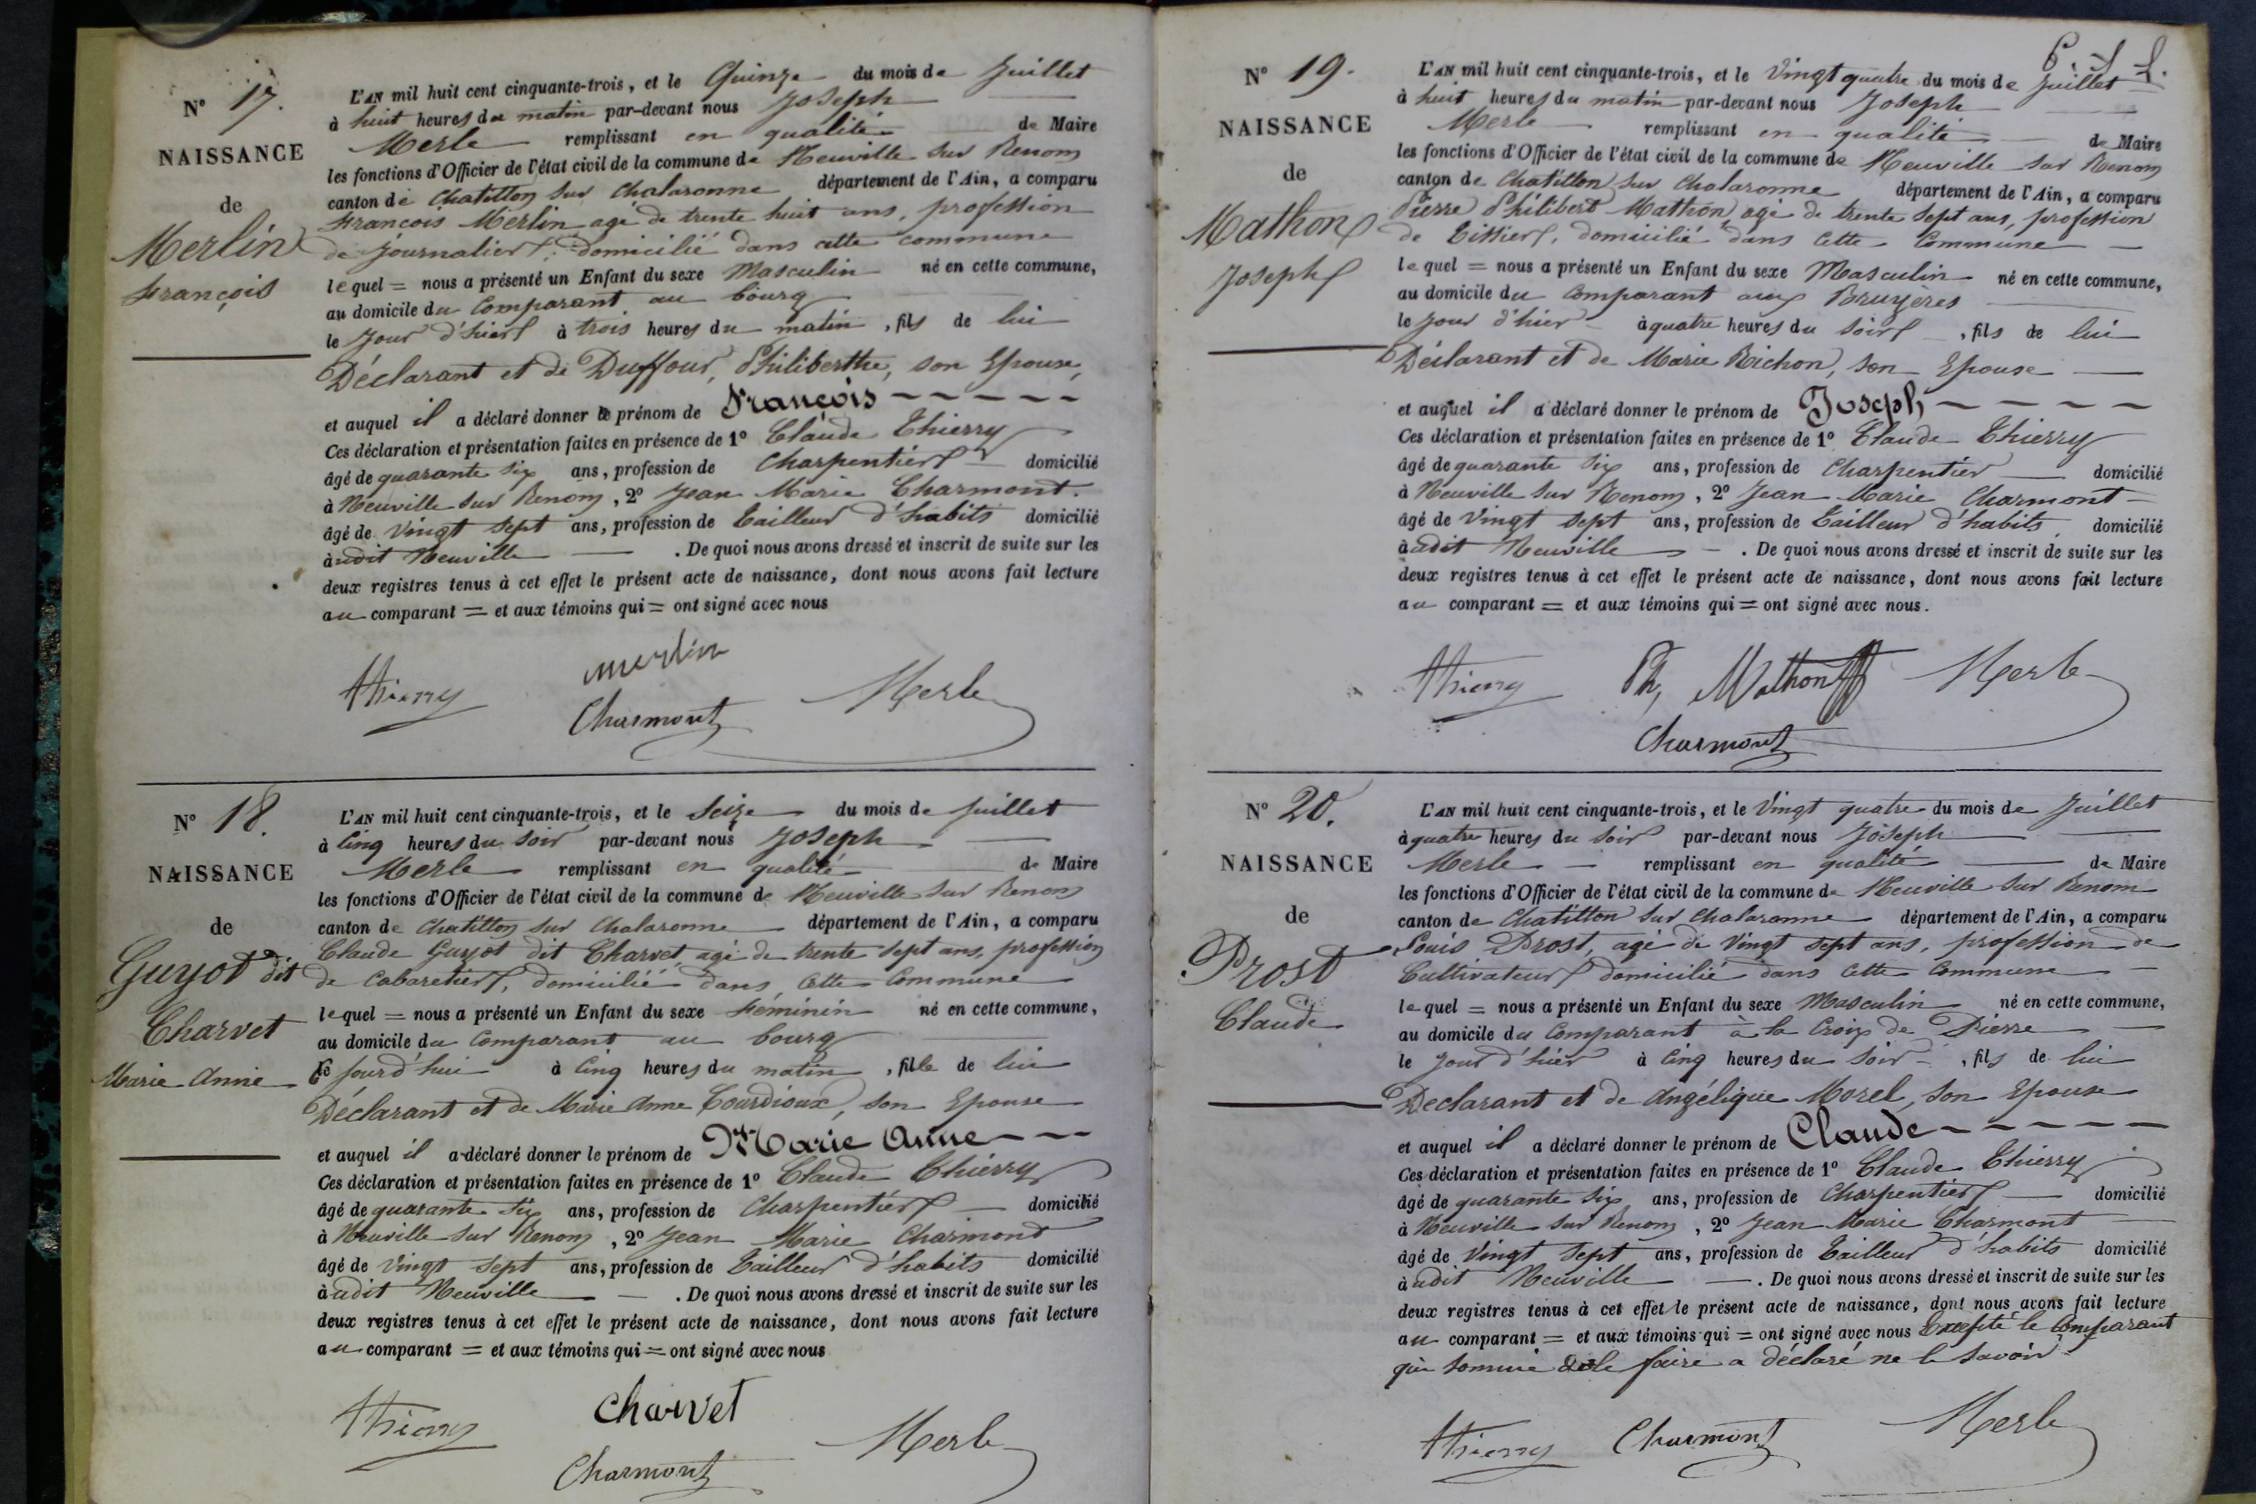 N° 17.
NAISSANCE
de
Merlin
François
L'AN mil huit cent cinquante-trois, et le Quinze du mois de Juillet
à huit heures du matin par-devant nous Joseph
Merle remplissant en qualité de Maire
les fonctions d'Officier de l'état civil de la commune de Neuville sur Renom
canton de Chatillon sur Chalaronne département de l'Ain, a comparu
François Merlin agé de trente huit ans, profession
de journalier, domicilié dans cette commune
lequel = nous a présenté un Enfant du sexe Masculin né en cette commune,
au domicile du Comparant au bourg
le Jour d'hier à trois heures du matin, fils de lui
Déclarant et de Duffour, Philiberthe, son Epouse,
et auquel il a déclaré donner le prénom de François
Ces déclaration et présentation faites en présence de 1° Claude Thierry
âgé de quarante six ans, profession de Charpentier domicilié
à Neuville sur Renom, 2° Jean Marie Charmont.
âgé de Vingt sept ans, profession de Tailleur d'habits domicilié
àudit Neuville . De quoi nous avons dressé et inscrit de suite sur les
deux registres tenus à cet effet le présent acte de naissance, dont nous avons fait lecture
au comparant = et aux témoins qui = ont signé avec nous
Thierry merlin Merle
Charmont
N° 18.
NAISSANCE
de
Guyot dit
Charvet
Marie Anne
L'AN mil huit cent cinquante-trois, et le Seize du mois de Juillet
à Cinq heures du soir par-devant nous Joseph
Merle remplissant en qualité de Maire
les fonctions d'Officier de l'état civil de la commune de Neuville sur Renom
canton de Chatillon sur Chalaronne département de l'Ain, a comparu
Claude Guyot dit Charvet, agé de trente sept ans, profession
de Cabaretier, domicilié dans cette Commune
lequel = nous a présenté un Enfant du sexe Féminin né en cette commune,
au domicile du Comparant au bourg
Ce jourd'hui à Cinq heures du matin, fille de lui
Déclarant et de Marie Anne Courdioux, son Epouse
et auquel il a déclaré donner le prénom de Marie Anne
Ces déclaration et présentation faites en présence de 1° Claude Thierry
âgé de quarante six ans, profession de Charpentier domicilié
à Neuville sur Renom, 2° Jean Marie Charmont
âgé de Vingt sept ans, profession de Tailleur d'habits domicilié
àudit Neuville . De quoi nous avons dressé et inscrit de suite sur les
deux registres tenus à cet effet le présent acte de naissance, dont nous avons fait lecture
au comparant = et aux témoins qui = ont signé avec nous
Thierry Charvet Merle
Charmont
N° 19.
NAISSANCE
de
Mathon
Joseph
L'AN mil huit cent cinquante-trois, et le Vingt quatre du mois de Juillet
à huit heures du matin par-devant nous Joseph
Merle remplissant en qualité de Maire
les fonctions d'Officier de l'état civil de la commune de Neuville sur Renom
canton de Chatillon sur Chalaronne département de l'Ain, a comparu
Pierre Philibert Mathon, agé de trente sept ans, profession
de Tissier, domicilié dans Cette Commune
lequel = nous a présenté un Enfant du sexe Masculin né en cette commune,
au domicile du Comparant aux Bruyères
le Jour d'hier à quatre heures du Soir, fils de lui
Déclarant et de Marie Richon, son Epouse
et auquel il a déclaré donner le prénom de Joseph
Ces déclaration et présentation faites en présence de 1° Claude Thierry
âgé de quarante six ans, profession de Charpentier domicilié
à Neuville sur Renom, 2° Jean Marie Charmont
âgé de Vingt sept ans, profession de Tailleur d'habits domicilié
àudit Neuville . De quoi nous avons dressé et inscrit de suite sur les
deux registres tenus à cet effet le présent acte de naissance, dont nous avons fait lecture
au comparant = et aux témoins qui = ont signé avec nous.
Thierry Ph, Mathon Merle
Charmont
N° 20.
NAISSANCE
de
Prost
Claude
L'AN mil huit cent cinquante-trois, et le Vingt quatre du mois de Juillet
à quatre heures du Soir par-devant nous Joseph
Merle remplissant en qualité de Maire
les fonctions d'Officier de l'état civil de la commune de Neuville sur Renom
canton de Chatillon sur Chalaronne département de l'Ain, a comparu
Louis Prost, agé de Vingt sept ans, profession de
Cultivateur domicilié dans Cette Commune
lequel = nous a présenté un Enfant du sexe Masculin né en cette commune,
au domicile du Comparant à la Croix de Pierre
le Jour d'hier à Cinq heures du Soir, fils de lui
Declarant et de Angélique Morel, son Epouse
et auquel il a déclaré donner le prénom de Claude
Ces déclaration et présentation faites en présence de 1° Claude Thierry
âgé de quarante six ans, profession de Charpentier domicilié
à Neuville sur Renom, 2° Jean Marie Charmont
âgé de Vingt sept ans, profession de Tailleur d'habits domicilié
àudit Neuville . De quoi nous avons dressé et inscrit de suite sur les
deux registres tenus à cet effet le présent acte de naissance, dont nous avons fait lecture
au comparant = et aux témoins qui = ont signé avec nous Excepté le Comparant
qui sommé de le faire a déclaré ne le savoir
Thierry Charmont Merle